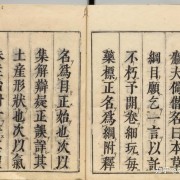 麤大備僭名曰本草
綱目願乞一言以託
不朽予開卷細玩每
藥標正名爲綱附釋
名爲目正始也次以
集解辯疑正誤詳其
土產形狀也次以氣